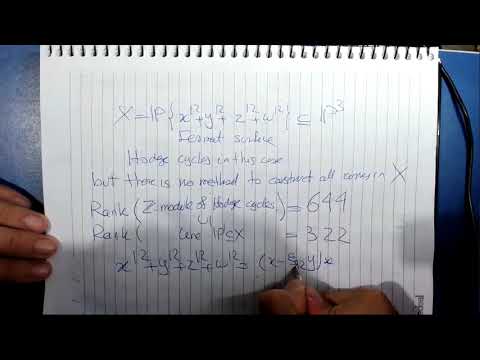 X = P{x^12+y^12+z^12+w^12} ⊆ P^3
Fermat surface
Hodge cycles in this case
but there is no method to construct all curves in X
Rank(Z-module of Hodge cycles) = 644
∪
Rank( line P ⊆ X = 322
x^12+y^12+z^12+w^12 = (x- y)x